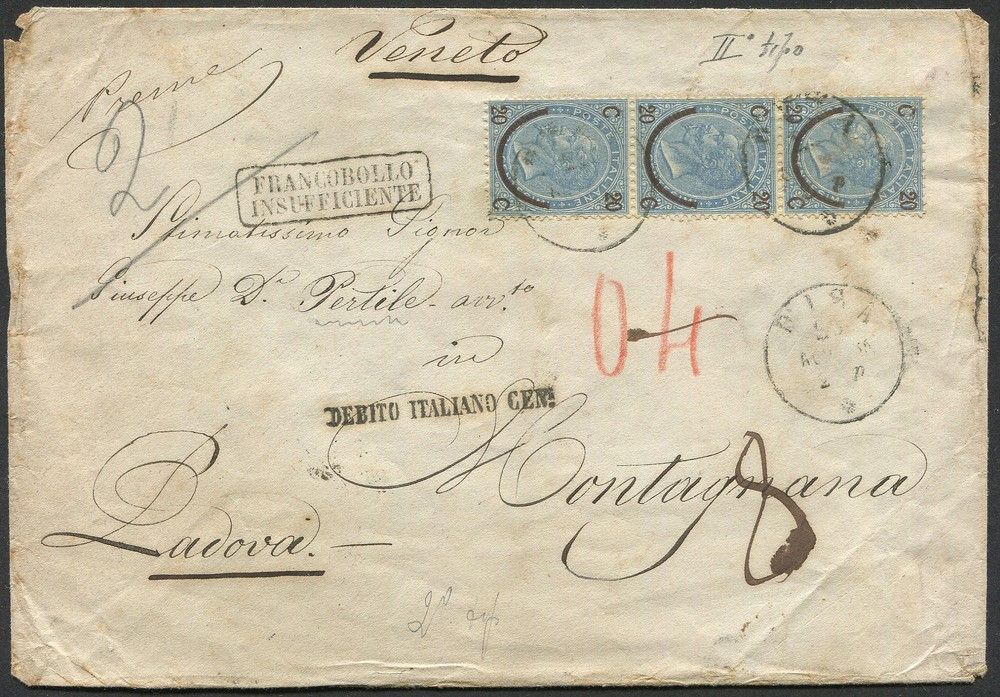 Veneto
IIº tipo
Preme
2
FRANCOBOLLO
INSUFFICIENTE
C 20 POSTE ITALIANE 20 C
C 20 POSTE ITALIANE 20 C
C 20 POSTE ITALIANE 20 C
Stimatissimo Signor
Giuseppe Dr. Pertile avv.to
04
PISA
in
DEBITO ITALIANO CENT
Montagnana
8
Padova.